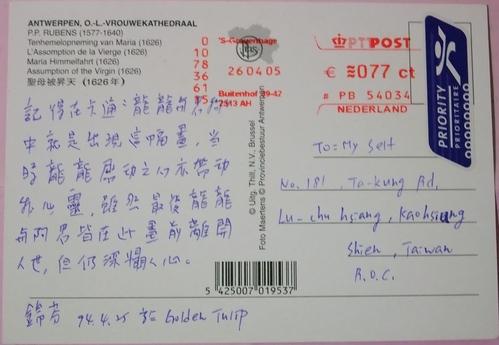 ANTWERPEN, O.-L.-VROUWEKATHEDRAAL
P.P. RUBENS (1577-1640)
Tenhemelopneming van Maria (1626)
L'Assomption de la Vierge (1626)
Maria Himmelfahrt (1626)
Assumption of the Virgin (1626)
聖母被昇天 (1626年)
0
10
78
36
61
'S-Gravenhage
26 04 05
Buitenhof 39-42
2513 AH
PTT POST
€ 077 ct
# PB 54034
NEDERLAND
PRIORITY
PRIORITAIRE
記得在卡通:龍龍與
中就是出現這幅畫,當
時龍龍感動之心亦帶動
我心靈,雖然最後龍龍
與阿忍皆在此畫前離開
人世,但仍深烙人心。
94.4.25 於 Golden Tulip
© Uitg. Thill, N.V., Brussel
Foto Maertens © Provinciebestuur Antwerpen
5 425007 019537
To: My Self
No. 181 Ta-kung Rd.
Lu-chu hsiang, Kaohsiung
Shien, Taiwan
R.O.C.